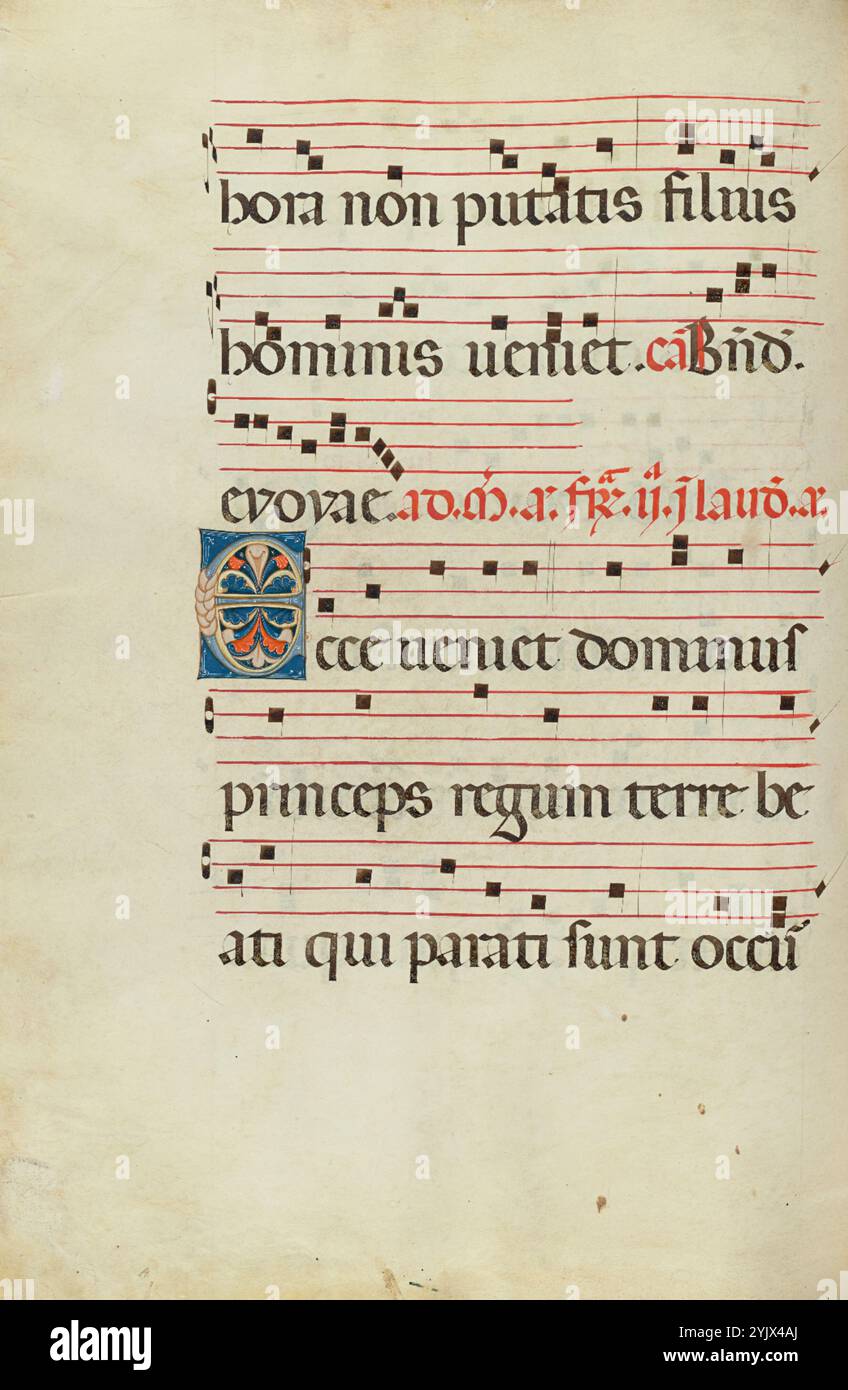 hora non putatis filius
hominis ueniet. cā Bn̄d̄.
evovae. ad. m̄. a. fr̄a. ij. j laud̄. a.
Ecce ueniet dominus
princeps regum terre be
ati qui parati sunt occū
alamy
Image ID: 2YJX4AJ
www.alamy.com